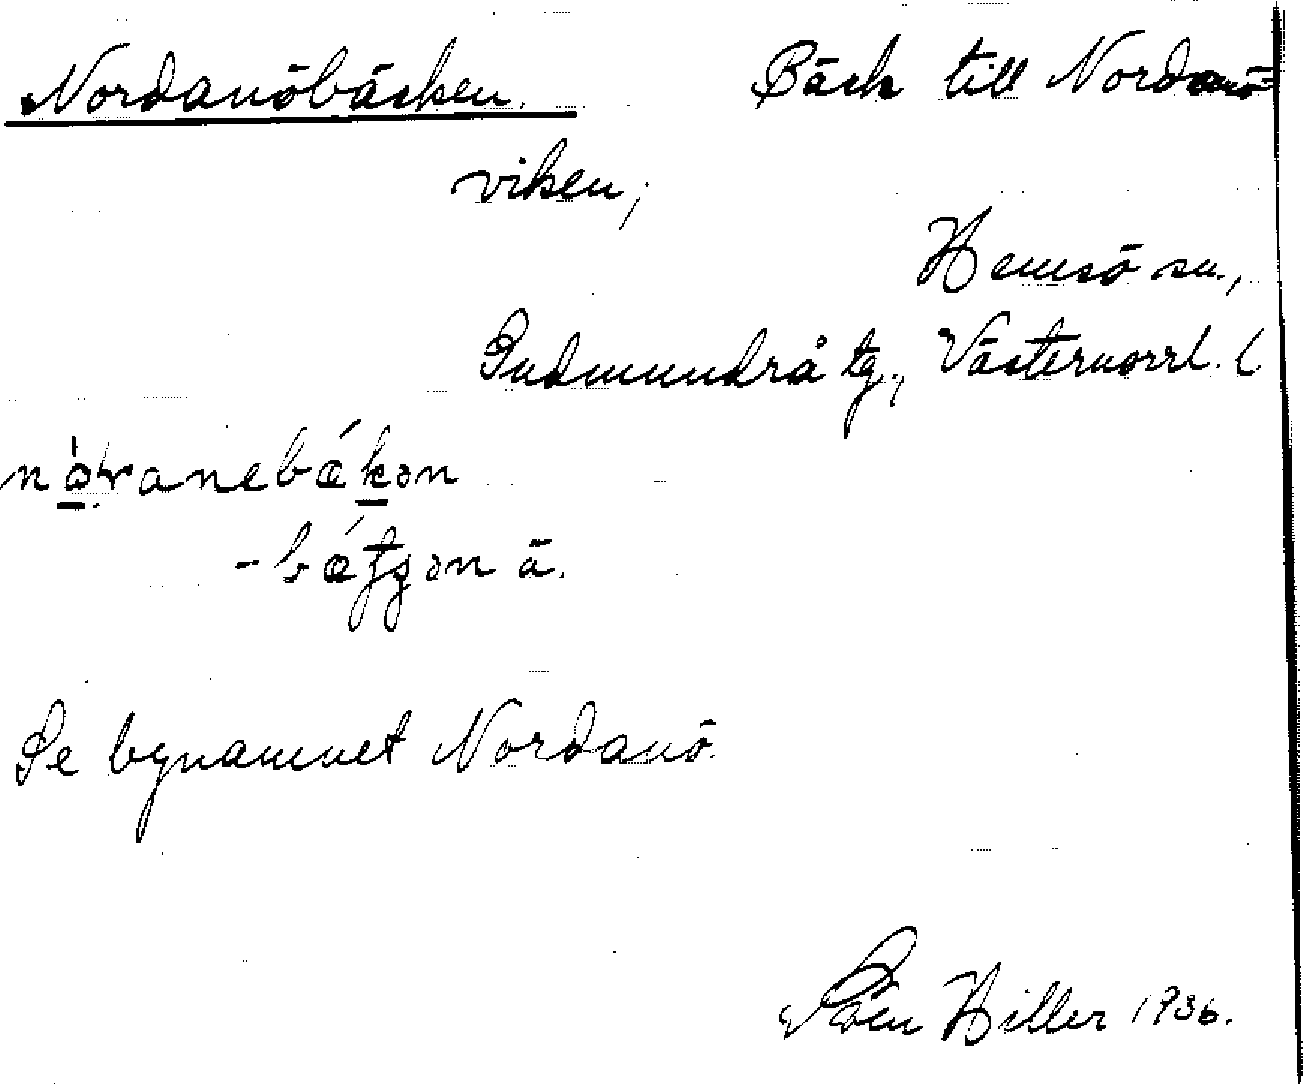 Nordanöbäcken. Bäck till Nordanö=
viken;
Hemsö sn.,
Gudmundrå tg., Västernorrl. l.
-bátʒən ä.
Se bynamnet Nordanö.
Hiller 1936.